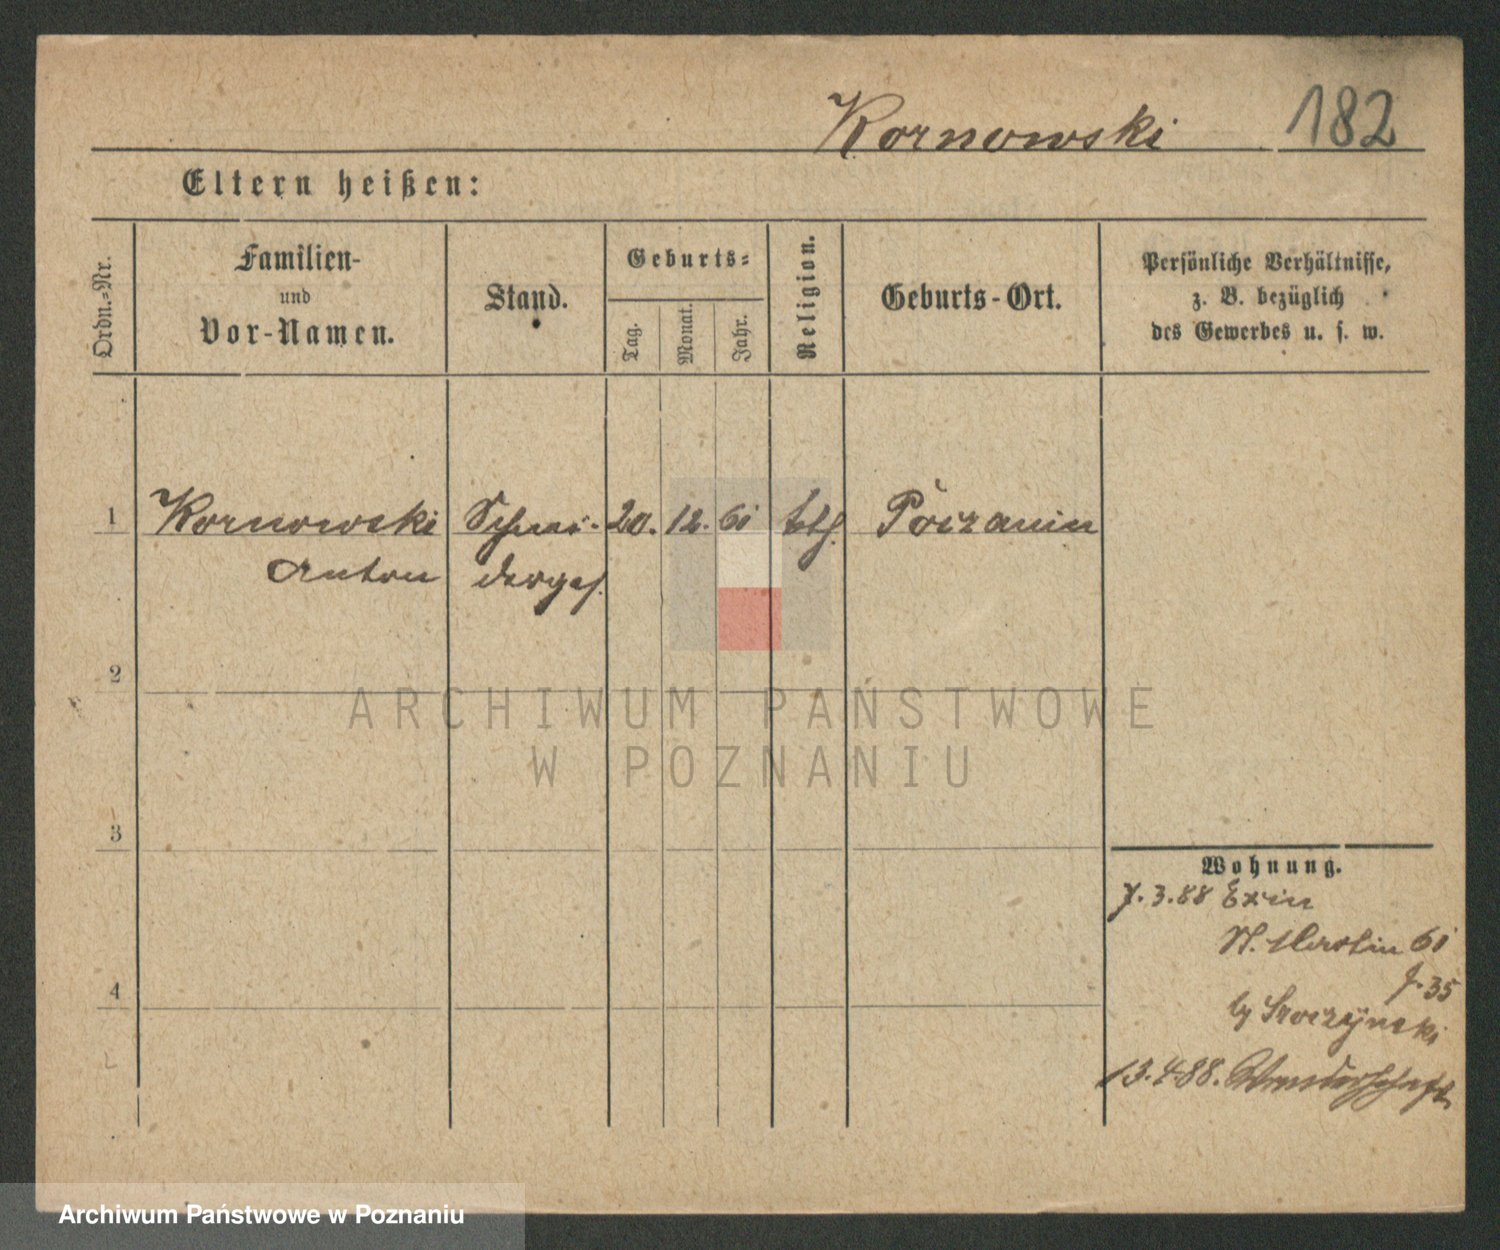 Kornowski 182
Eltern heißen:
Ordn.-Nr.
Familien-
und
Vor-Namen.
Stand.
Geburts-
Tag.
Monat.
Jahr.
Religion.
Geburts-Ort.
Persönliche Verhältnisse,
z. B. bezüglich
des Gewerbes u. s. w.
1 Kornowski Schnei- 20. 12. 61 kth.
Anton derges.
2
ARCHIWUM PAŃSTWOWE
W POZNANIU
3
Wohnung.
7. 3. 88 Exin
St. Martin 61
35
4
13. 4. 88. Wanderschaft
Archiwum Państwowe w Poznaniu